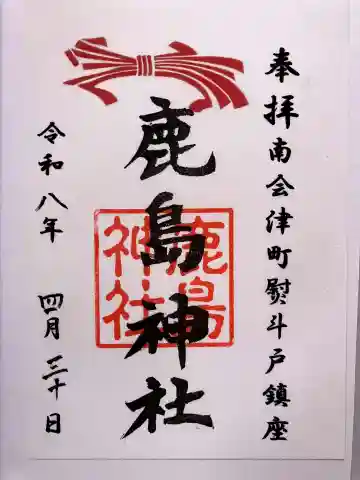 奉拝南会津町熨斗戸鎮座
鹿島神社
鹿島
神社
令和八年 四月三十日